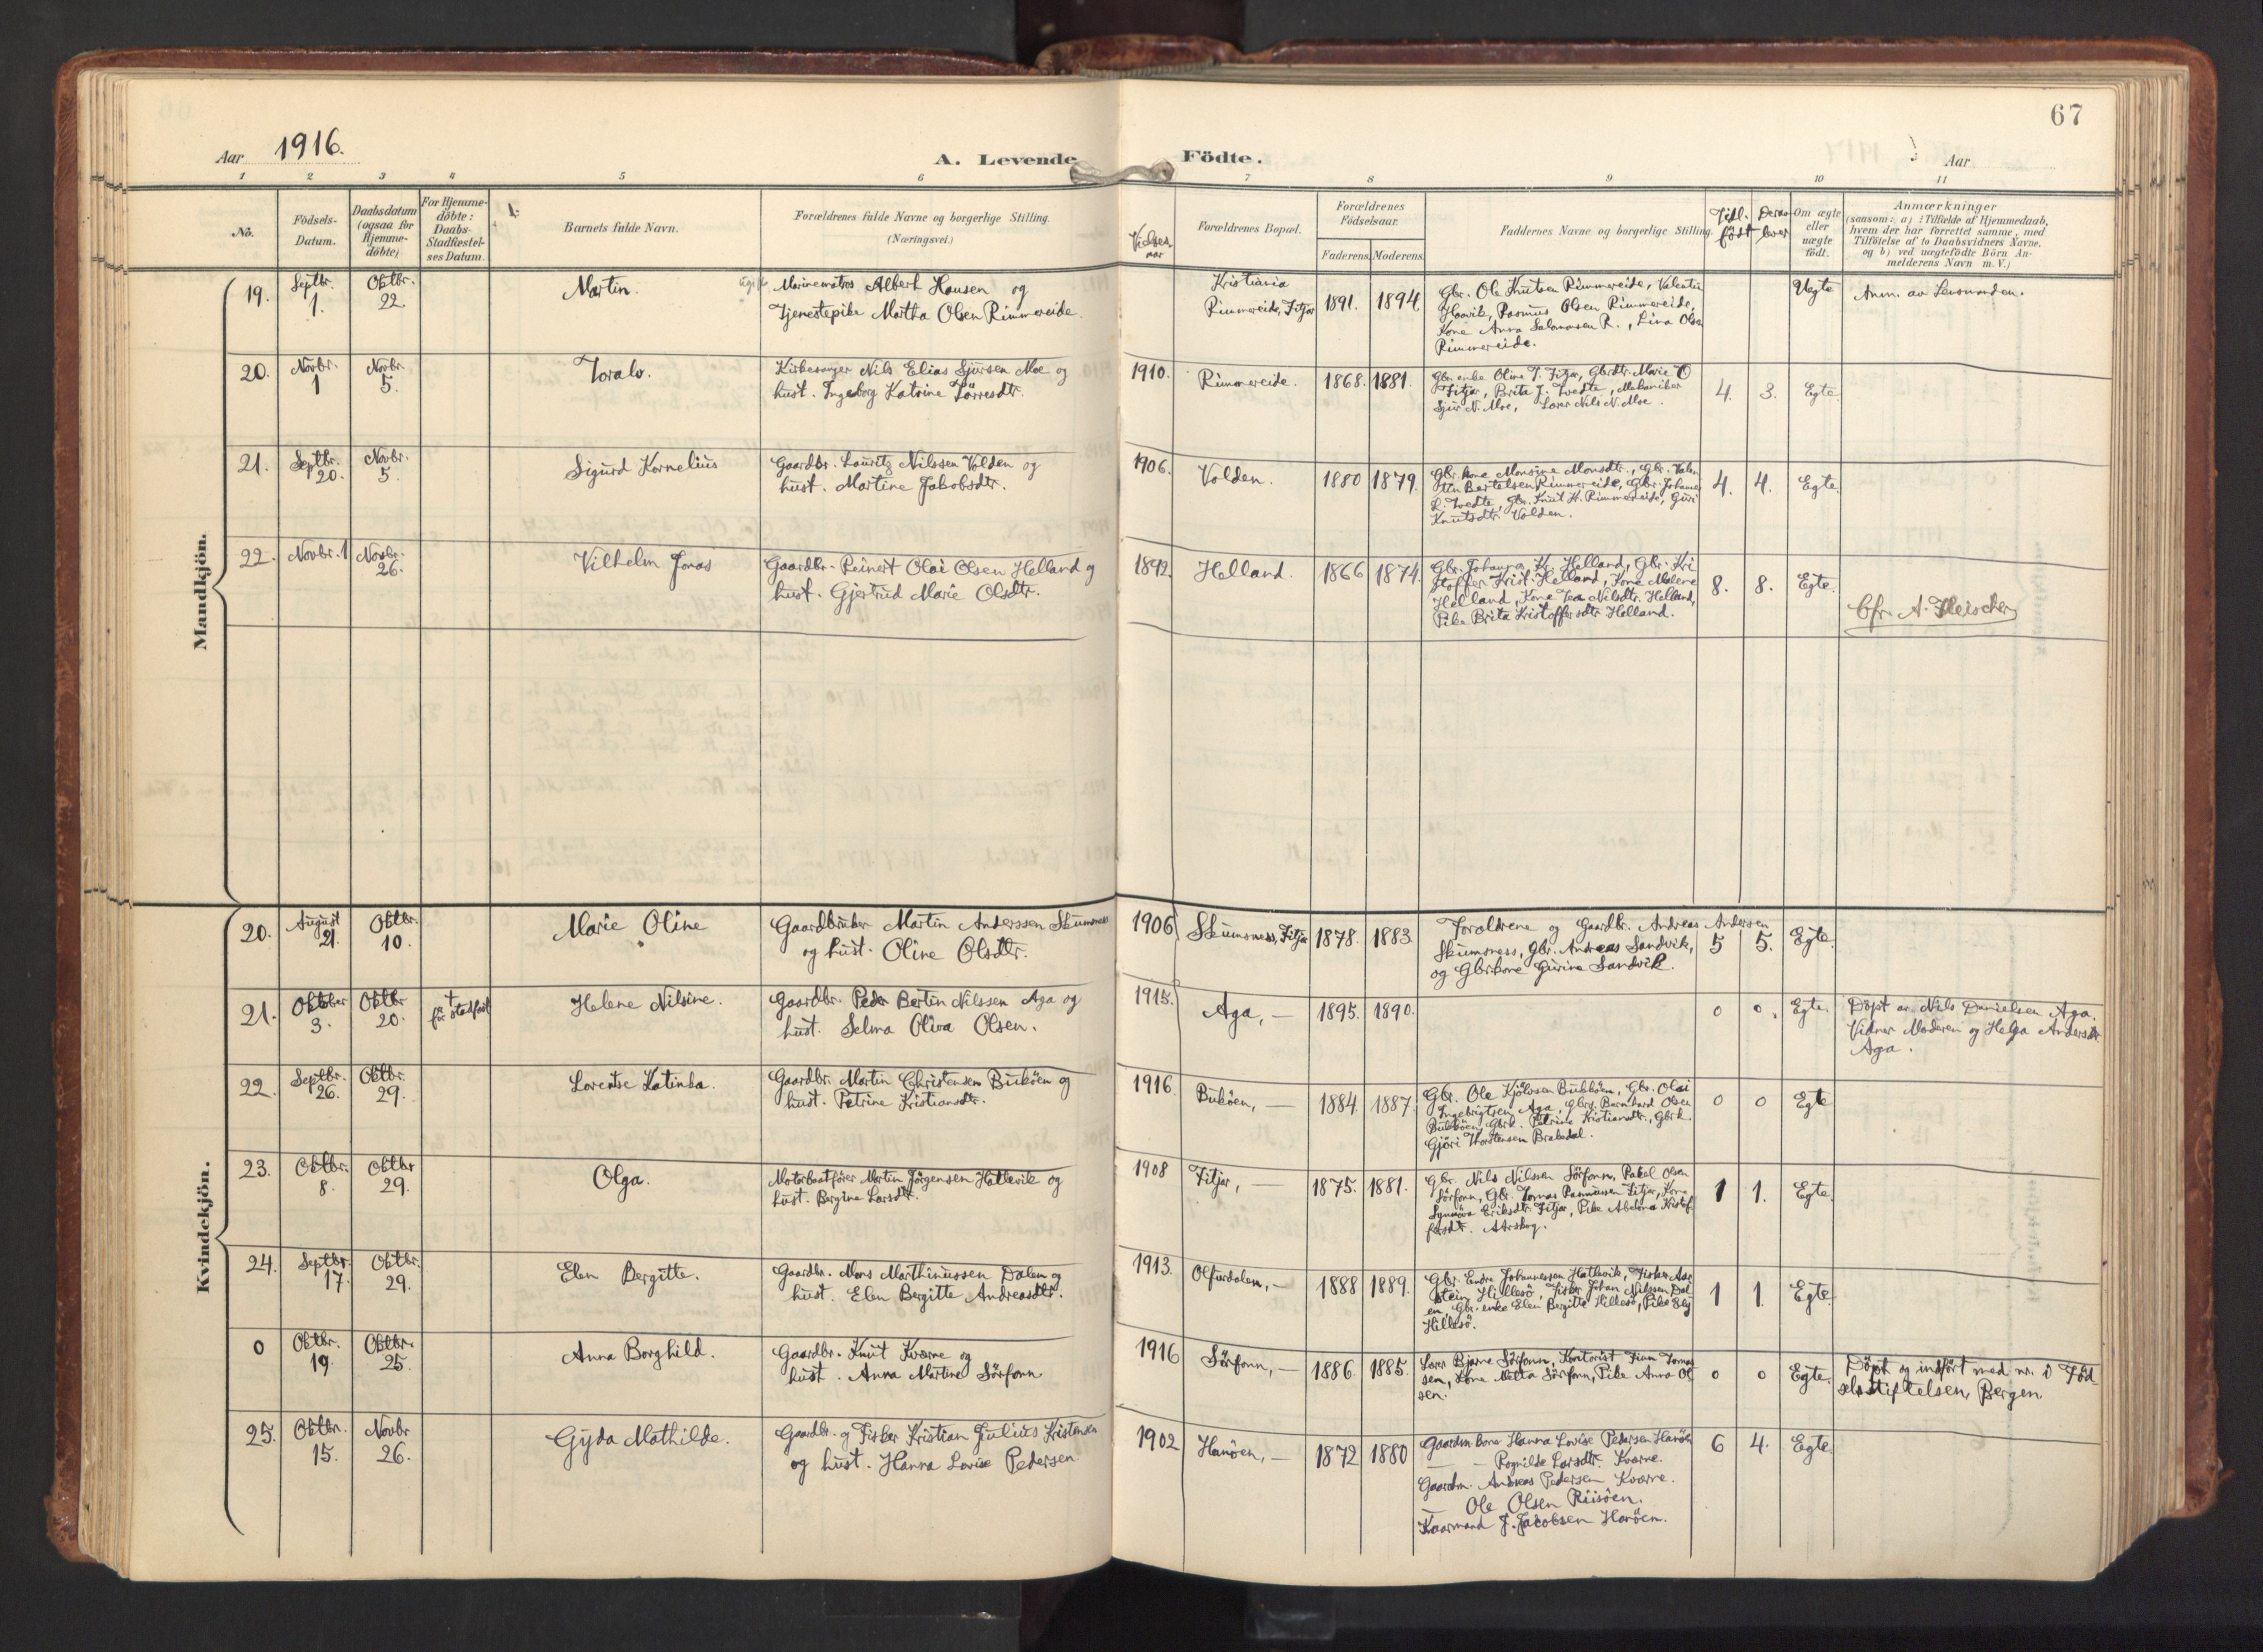 67
Aar 1916.
A. Levende Födte.
Aar
1 2 3 4 5 6 7 8 9 10 11
No.
Födsels-Datum.
Daabsdatum (ogsaa for Hjemme-döbte)
For Hjemme-döbte: Daabs-Stadfæstel-ses Datum.
Barnets fulde Navn.
Forældrenes fulde Navne og borgerlige Stilling.
(Næringsvei.)
Vielses aar
Forældrenes Bopæl.
Forældrenes Födselsaar.
Faderens. Moderens.
Faddernes Navne og borgerlige Stilling.
Tidl. født
Derav lever
Om ægte eller uægte födt.
Anmærkninger
(saasom: a) i Tilfælde af Hjemmedaab,
hvem der har forrettet samme, med
Tilföielse af to Daabsvidners Navne,
og b) ved uægtefödte Börn An-
melderens Navn m. V.)
Mandkjön.
19. Septbr. 1. Oktbr. 22. Martin.
ugift Marinematros Albert Hansen og
Tjenestepike Martha Olsen Rimmereide.
Kristiania
Rimmereide, Fitjar 1891. 1894
Gbr. Ole Knutsen Rimmereide, Valentin
Haavik, Rasmus Olsen Rimmereide,
Kone Anna Salamonsen R., Lina Olsen
Rimmereide.
Uegte Anm. av Lensmanden.
20. Novbr. 1 Novbr. 5. Toralv.
Kirkesanger Nils Elias Sjursen Moe og
hust. Ingeborg Katrine Larresdtr.
1910. Rimmereide. 1868. 1881.
Gbr. enke Oline T. Fitjar, Gbrdtr. Marie O
Fitjar, Brita J. Tvedte, Mekaniker
Sjur N. Moe, Lærer Nils N. Moe.
4. 3. Egte.
21. Septbr. 20. Novbr. 5. Sigurd Kornelius
Gaardbr. Lauritz Nilssen Volden og
hust. Martine Jakobsdtr.
1906. Volden. 1880 1879.
Gbr. kone Monsine Monsdtr., Gbr. Valen
tin Bertelsen Rimmereide, Gbr. Johannes
L. Tvedte, Gbr. Knut H. Rimmereide, Guri
Knutsdtr. Volden.
4. 4. Egte.
22. Novbr. 1 Novbr. 26. Vilhelm Jonas
Gaardbr. Reinert Olai Olsen Helland og
hust. Gjertrud Marie Olsdtr.
1892. Helland. 1866 1874.
Gbr. Johannes Kr. Helland, Gbr. Kri
stoffer Krist. Helland, Kone Malene
Helland, Kone Tea Nilsdtr. Helland,
Pike Brita Kristoffersdtr Helland.
8. 8. Egte.
Cfr. A. Fleischer
Kvindekjön.
20. August 21. Oktbr. 10. Marie Oline
Gaardbruker Martin Anderssen Skumsness
og hust. Oline Olsdtr.
1906 Skumsness, Fitjar 1878. 1883.
Foraldrene og Gaardbr. Andreas Andersen
Skumsness, Gbr. Andreas Sandvik,
og Gbrkone Gurine Sandvik.
5 5. Egte.
21. Oktober 3. Oktbr 20. † før stadfæst Helene Nilsine.
Gaardbr. Peder Bertin Nilssen Aga og
hust. Selma Oliva Olsen.
1915. Aga, — 1895. 1890.
0 0. Egte.
Döpt av Nils Danielsen Aga.
Vidner Moderen og Helga Andersdtr
Aga.
22. Septbr. 26. Oktbr. 29. Lorentse Katinka.
Gaardbr. Martin Christensen Buköen og
hust. Petrine Kristiansdtr.
1916. Buköen, — 1884. 1887.
Gbr. Ole Kjölvsen Bukköen, Gbr. Olai
Ingebrigtsen Aga, Gbrg. Bernhard Olsen
Bukköen, Gbrk. Petrine Kristiansdtr, Gbrk.
Gjöri Thorstensen Brakedal.
0 0 Egte
23. Oktbr. 8. Oktbr 29. Olga.
Motorbaatförer Martin Jörgensen Hatlevik og
hust. Bergine Larsdtr.
1908 Fitjar, — 1875. 1881.
Gbr. Nils Nilssen Sörfonn, Rakel Olsen
Sörfonn, Gbr. Tomas Rasmussen Fitjar, Kone
Synnöva Eriksdtr. Fitjar, Pike Abelona Kristof
fersdtr. Aarskog.
1 1. Egte.
24. Septbr. 17. Oktbr. 29. Elen Bergitte.
Gaardbr. Mons Marthinussen Dalen og
hust. Elen Bergitte Andreasdtr.
1913. Olfurdalen, — 1888 1889.
Gbr. Endre Johannessen Hatlevik, Fisker Aar
stein Hillesö, Fisker Johan Nilssen Dal
en, Gbr. enke Elen Bergitte Hillesö, Pike
Hillesö.
1 1 Egte.
0 Oktbr. 19. Oktbr. 25. Anna Borghild.
Gaardbr. Knut Kværne og
hust. Anna Martine Sörfonn
1916 Sörfonn, — 1886. 1885.
Lærer Bjarne Sörfonn, Kontorist Finn Tomas
sen, Kone Netta Sörfonn, Pike Anna Ol
sen.
0 0 Egte.
Döpt og indfört med nr. i Föd-
selsstiftelsen, Bergen
25. Oktbr. 15. Novbr 26. Gyda Mathilde.
Gaardbr. og Fisker Kristian Julius Kristensen
og hust. Hanna Lovise Pedersen
1902 Hanöen, — 1872 1880
Gaardm. kone Hanna Lovise Pedersen Hanöen
— — Ragnilde Larsdtr. Kværne.
Gaardm. Andreas Pedersen Kværne.
— Ole Olsen Risöen.
Kaarmand J. Jacobsen Hanöen.
6 4. Egte.